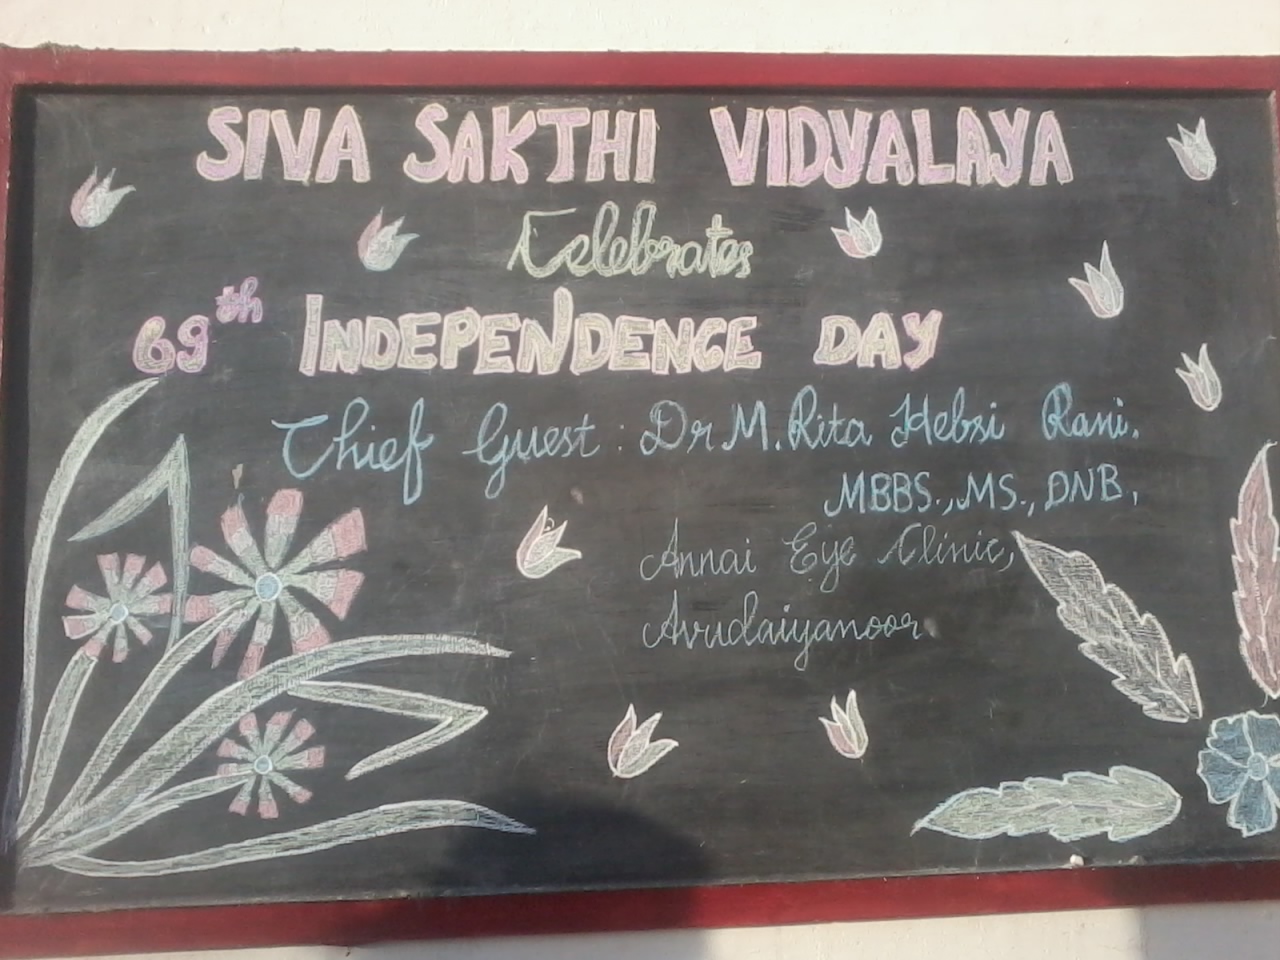 SIVA SAKTHI VIDYALAYA
Celebrates
69th INDEPENDENCE DAY
Chief Guest : Dr M. Rita Hebsi Rani.
MBBS., MS., DNB,
Annai Eye Clinic,
Avudaiyanoor.